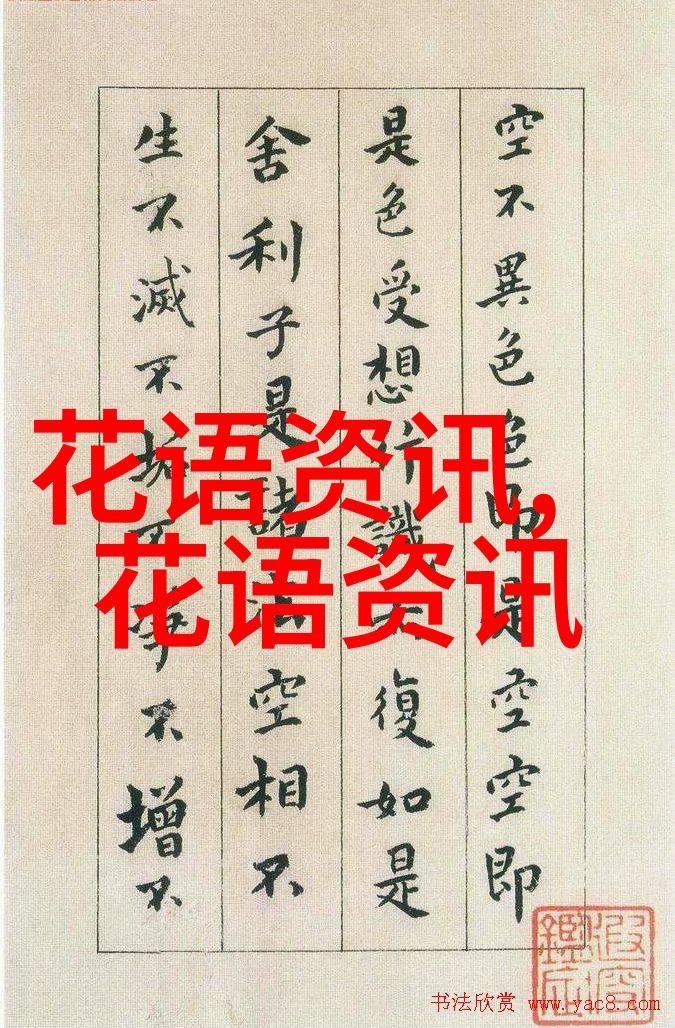 空不異色色即是空空即
是色受想行識亦復如是
舍利子是諸法空相不
生不滅不垢不淨不增不
花语资讯,
花语资讯
书法欣赏 www.yac8.com